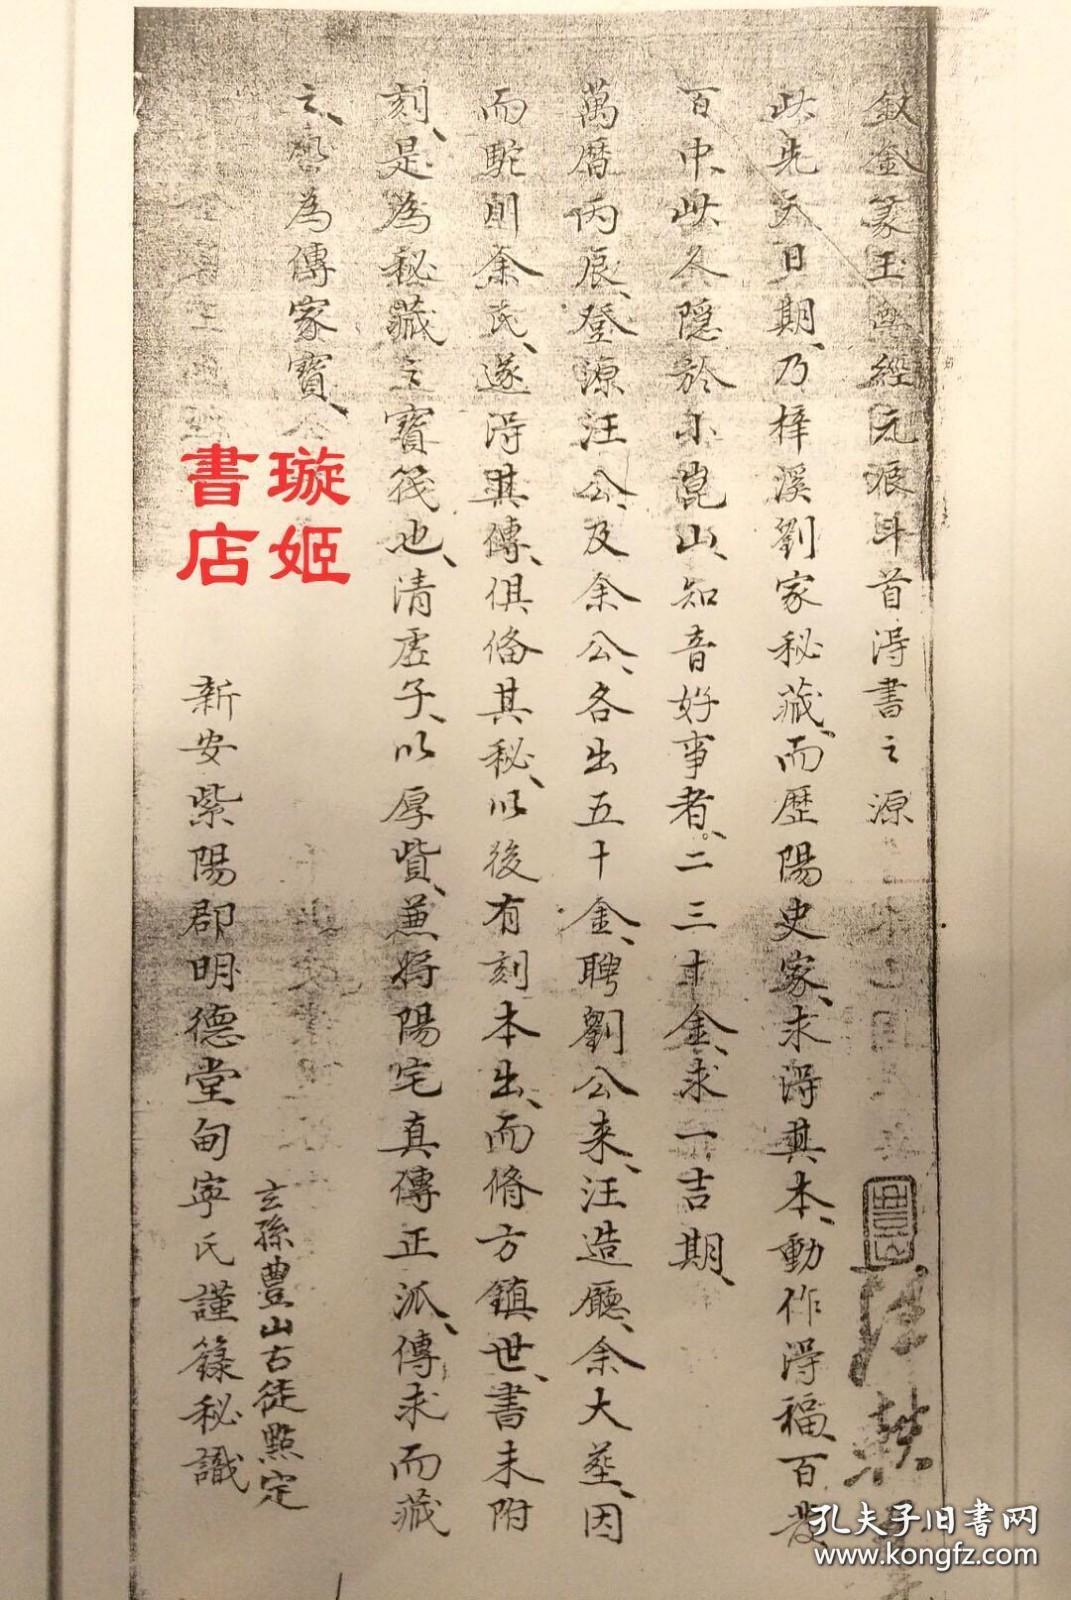 敘金篆玉函經元辰斗首淂書之源
此先天日期、乃梓溪劉家秘藏、而歷陽史家、求淂其本、動作淂福、百發
百中、此久隱於小崑山、知音好事者、二三十金、求一吉期、
萬曆丙辰、登源汪公、及余公、各出五十金、聘劉公来、汪造廳、余大葬、因
而駝則余氏、遂淂其傳、俱俻其秘、以後有刻本出、而脩方鎮世、書未附
刻、是為秘藏之寳筏也、清虛子、以厚貲、兼將陽宅真傳正派、傳求而藏
之、為傳家寳、
玄孫豊山古徒㸃定
新安紫陽郡明德堂甸寧氏謹錄秘識
璇姬
書店
孔夫子旧書网
www.kongfz.com